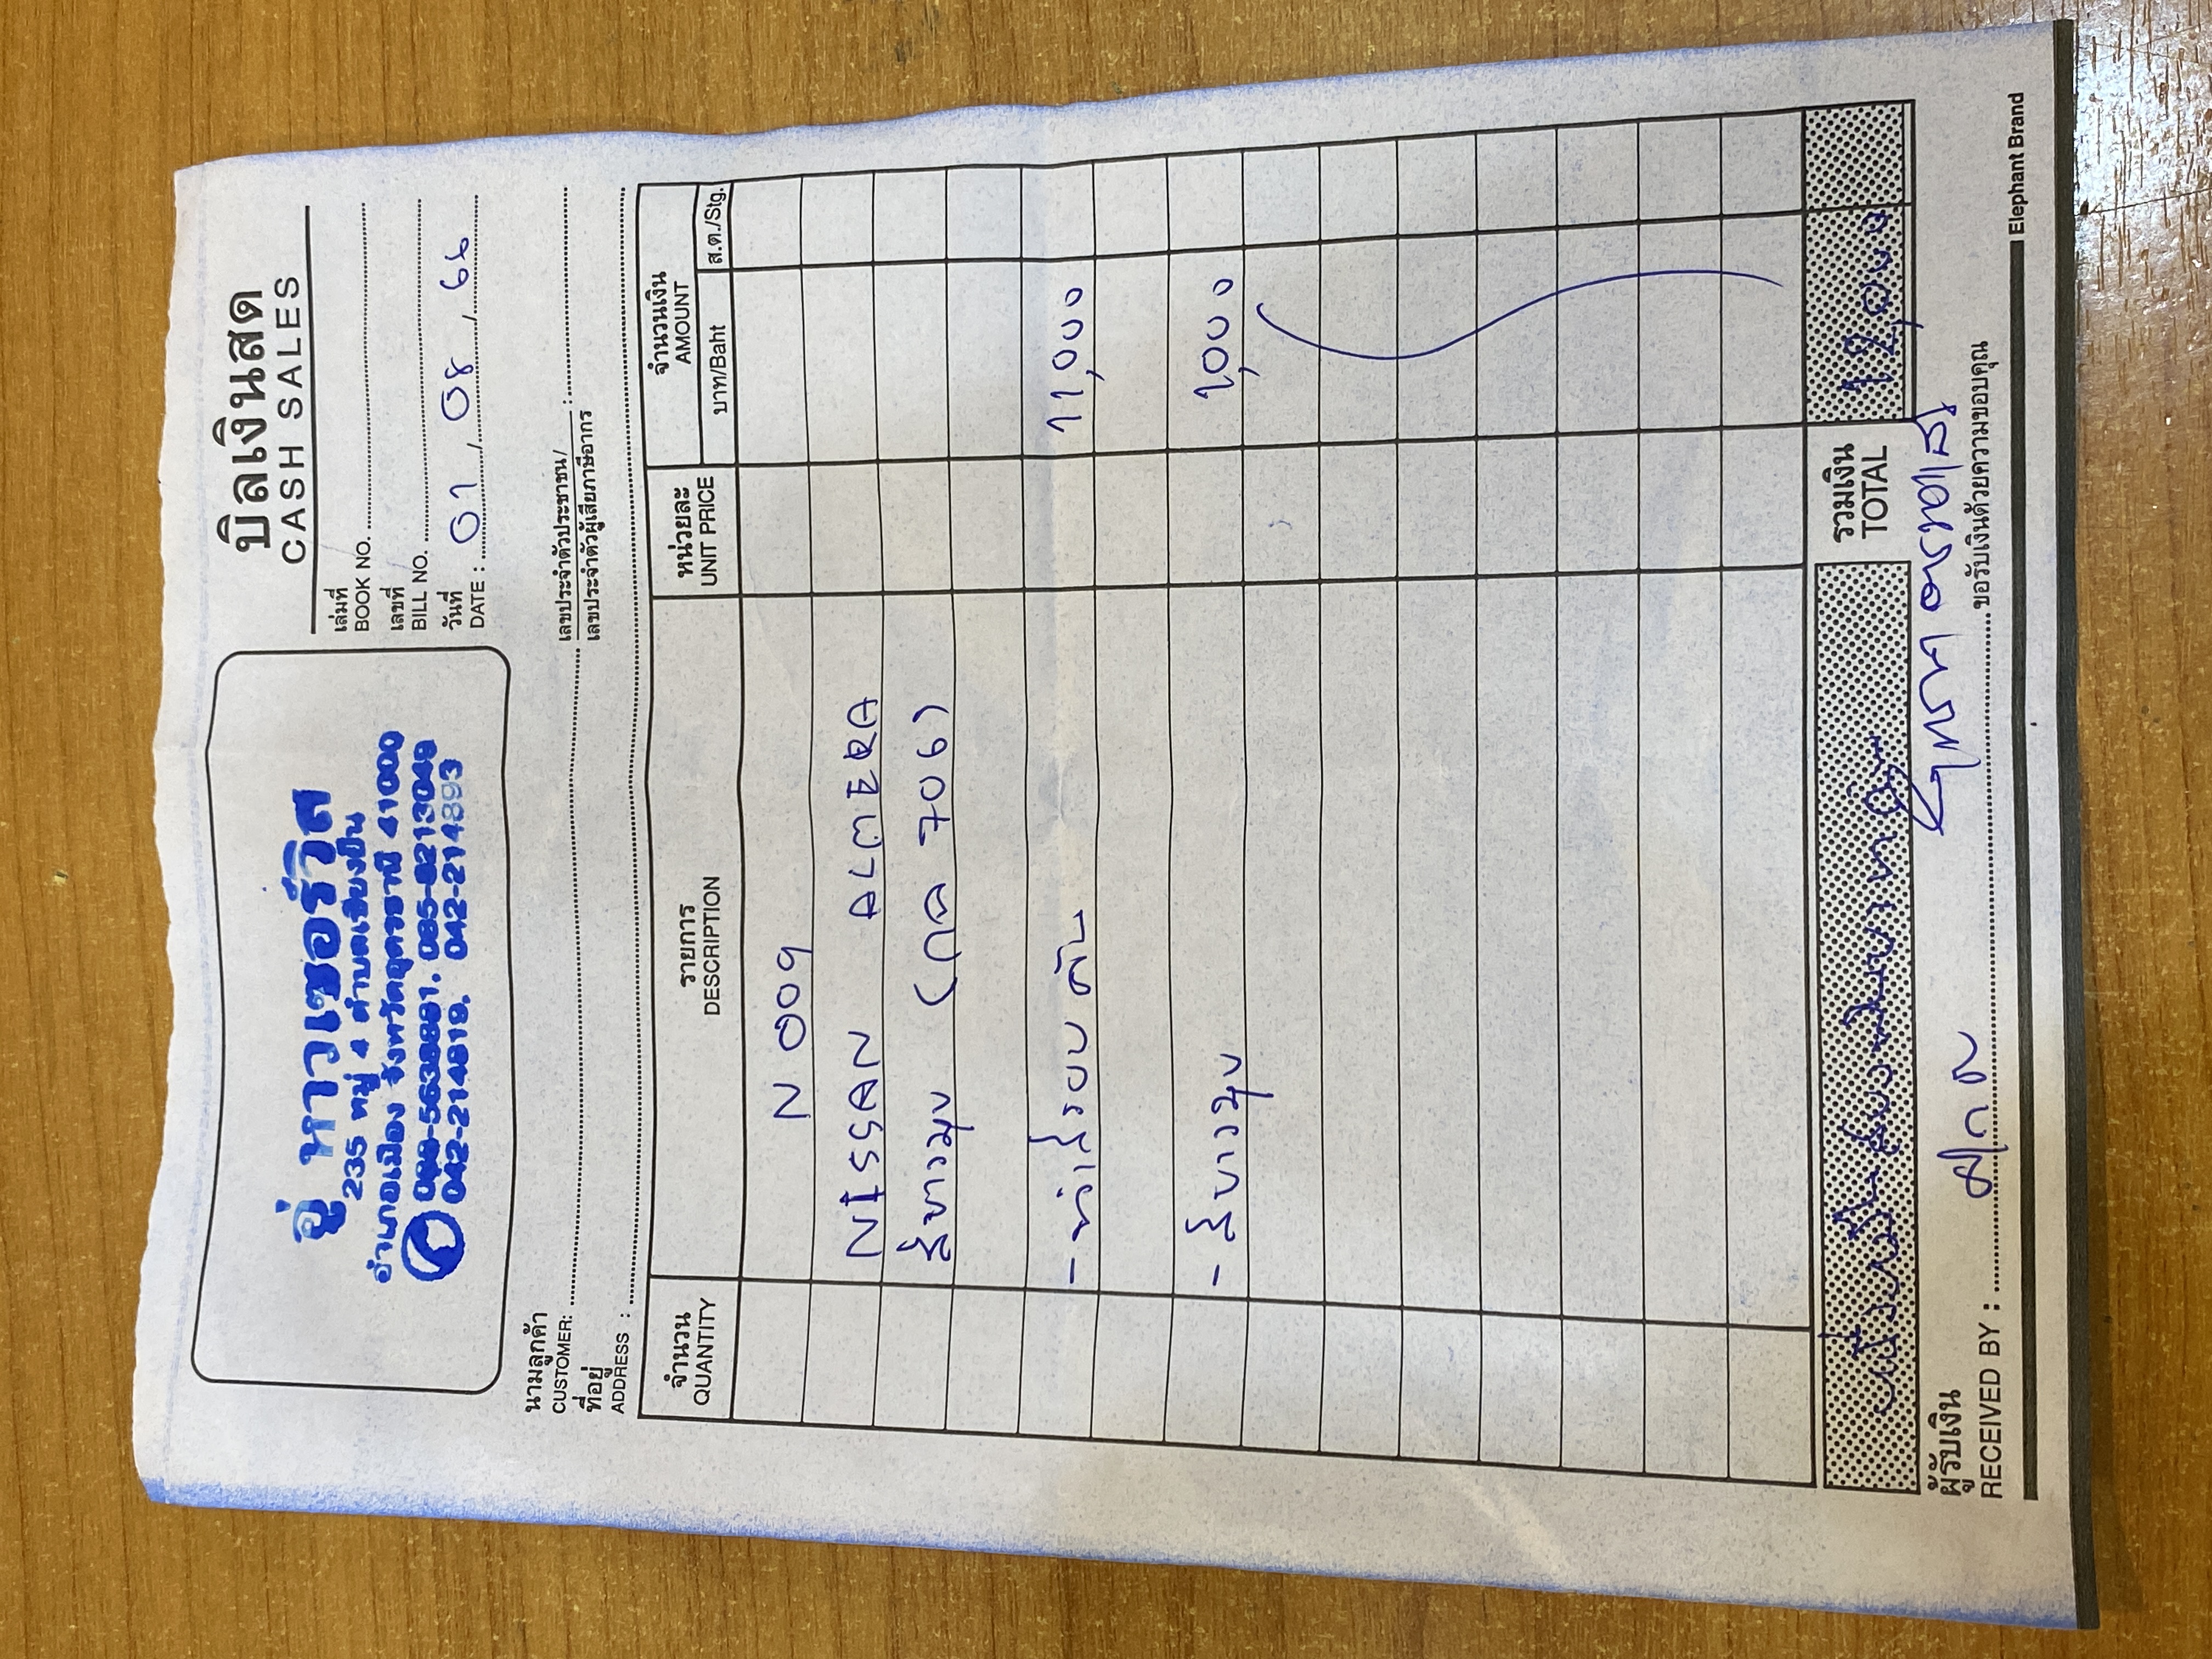 อู่ หาวเซอร์วิส
235 หมู่ 4 ตำบลเชียงยืน
อำเภอเมือง จังหวัดอุดรธานี 41000
042-214819, 042-214893
บิลเงินสด
CASH SALES
เล่มที่
BOOK NO.
เลขที่
BILL NO.
วันที่
DATE : 01 / 08 / 66
นามลูกค้า
CUSTOMER:
เลขประจำตัวประชาชน/
เลขประจำตัวผู้เสียภาษีอากร :
ที่อยู่
ADDRESS :
จำนวน
QUANTITY
รายการ
DESCRIPTION
หน่วยละ
UNIT PRICE
จำนวนเงิน
AMOUNT
บาท/Baht
ส.ต./Stg.
N 009
NISSAN ALMERA
สีขาวมุข (กล 706)
- ทำสีรอบคัน 11,000
- สีขาวมุข 1,000
หนึ่งหมื่นสองพันบาทถ้วน
รวมเงิน
TOTAL
12,000
ผู้รับเงิน
RECEIVED BY :
ขอรับเงินด้วยความขอบคุณ
Elephant Brand